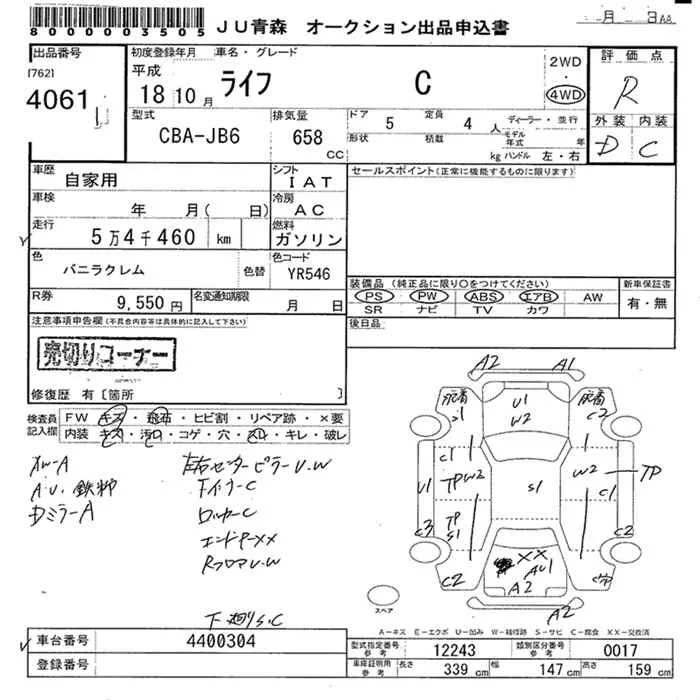 8000003505
JU青森 オークション出品申込書
月 3 A8
出品番号
[762]
4061
初度登録年月
平成
18 10月
車名・グレード
ライフ C
2WD
・
4WD
評価点
R
外装 内装
D C
型式
CBA-JB6
排気量
658
CC
ドア 5 定員 4 人
形状 積数 kg
ディーラー・並行
モデル年式 年
ハンドル 左・右
車歴
自家用
シフト
IAT
セールスポイント(正常に機能するものに限ります)
車検
年 月( 日)
冷房
AC
走行
5万4千460 km
燃料
ガソリン
色
バニラクレム
色替
色コード
YR546
装備品 (純正品に限り○をつけてください)
PS PW ABS エアB AW
SR ナビ TV カワ
新車保証書
有・無
R券
9,550円
名変通知期限
月 日
後日品
注意事項申告欄(不具合内容等は具体的に記入して下さい)
売切りコーナー
修復歴 有〔箇所 〕
検査員記入欄
FW キズ・飛石・ヒビ割・リペア跡・×要
内装 キズ・汚レ・コゲ・穴・スレ・キレ・破レ
AW-A
Dミラー A
左右センターピラーU.W
インナーC
ロッカーC
エンドP××
RフロアU.W
下廻りS.C
A2 A1
U1
W2
S1
C2
C1
TP W2
W2
TP
U1
S1
C1
TP
S1
C3
C2
××
AU1
C2
A2
A2
スペア
A-キズ E-エクボ U-凹み W-補修跡 S-サビ C-腐食 XX-交換済
車台番号
4400304
登録番号
型式指定番号
参考
12243
類別区分番号
参考
0017
車庫証明用
参考
長さ 339 cm 幅 147 cm 高さ 159 cm